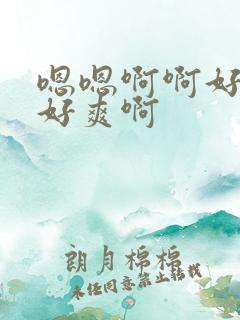 嗯嗯啊啊好
好爽啊
朗月棉棉
未经同意禁止转载